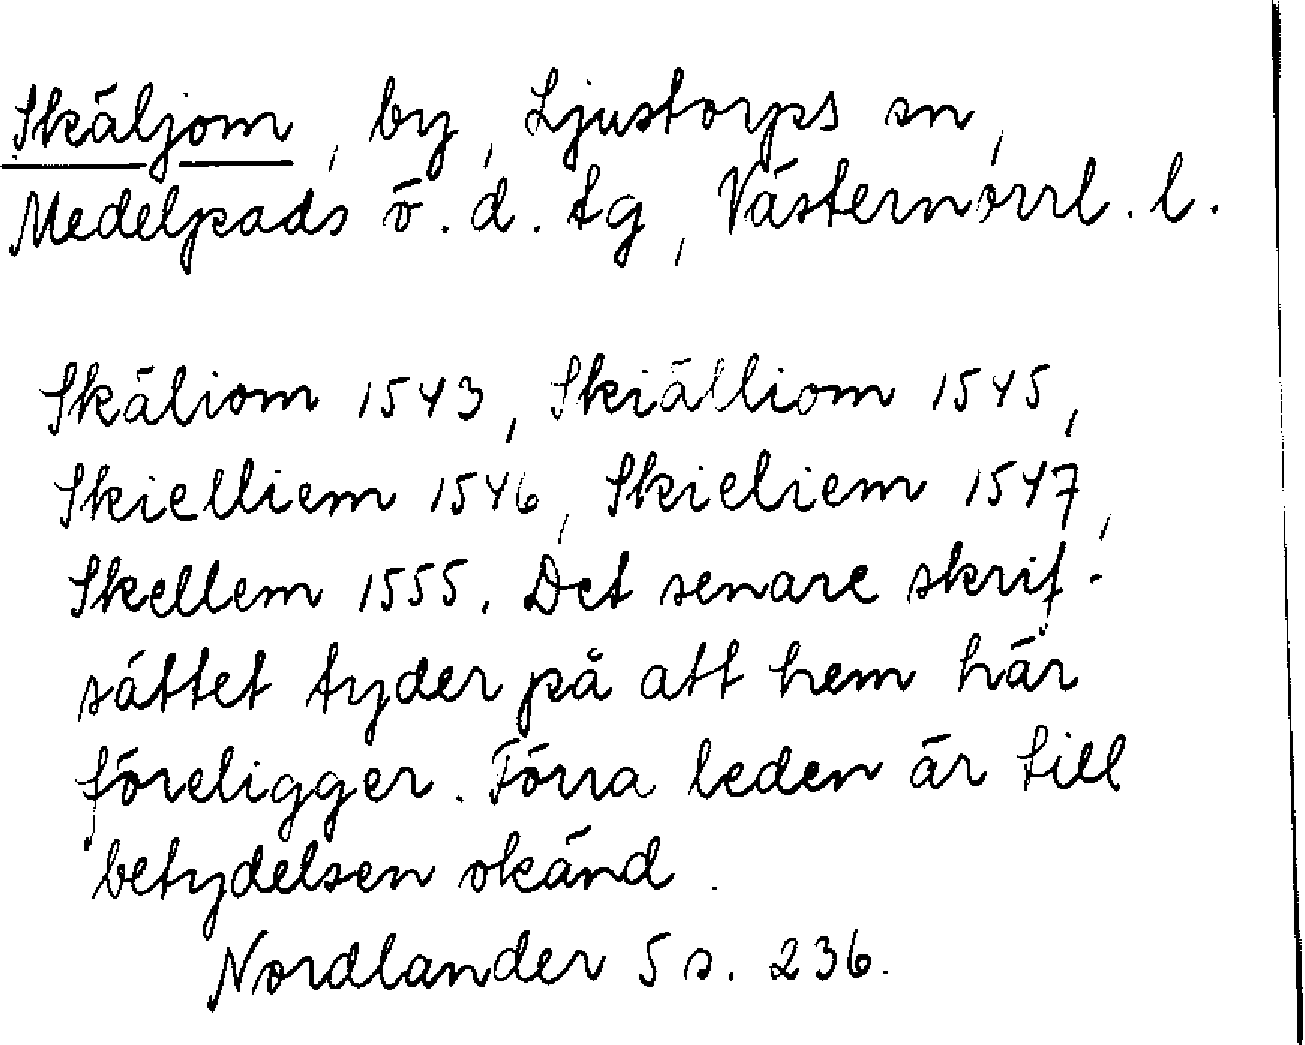 Skäljom, by, Ljustorps sn,
Medelpads ö. d. tg, Västernorrl. l.
Skäliom 1543, Skiälliom 1545,
Skielliem 1546, Skieliem 1547,
Skellem 1555. Det senare skrif-
sättet tyder på att hem här
föreligger. Förra leden är till
betydelsen okänd.
Nordlander 5 s. 236.